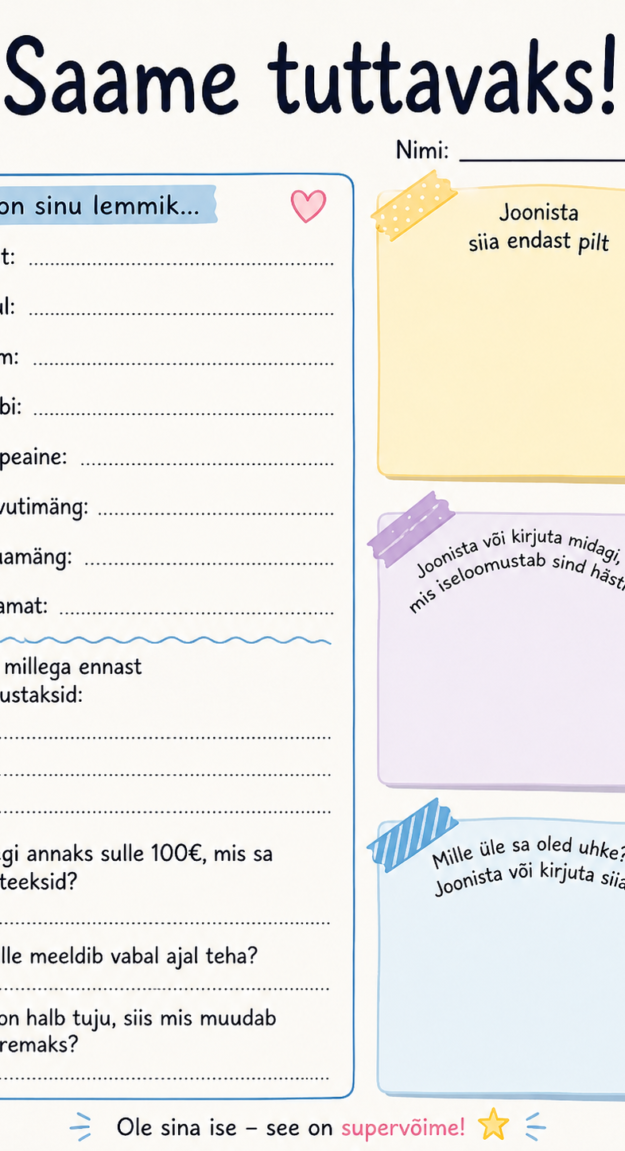 Saame tuttavaks!
Nimi:
on sinu lemmik...
t:
ul:
m:
bi:
peaine:
vutimäng:
uamäng:
amat:
millega ennast
ustaksid:
gi annaks sulle 100€, mis sa
teeksid?
lle meeldib vabal ajal teha?
on halb tuju, siis mis muudab
remaks?
Joonista
siia endast pilt
Joonista või kirjuta midagi,
mis iseloomustab sind hästi
Mille üle sa oled uhke?
Joonista või kirjuta siia
Ole sina ise – see on supervõime!